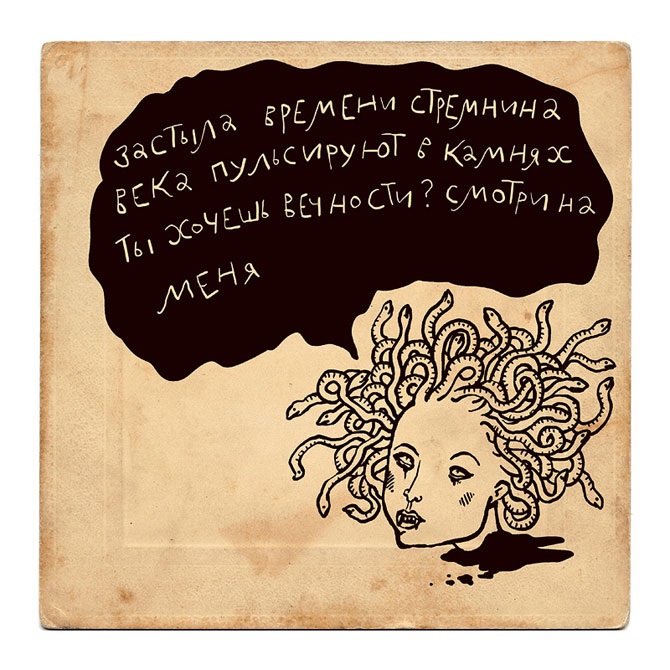 застыла времени стремнина
века пульсируют в камнях
ты хочешь вечности? смотри на
меня